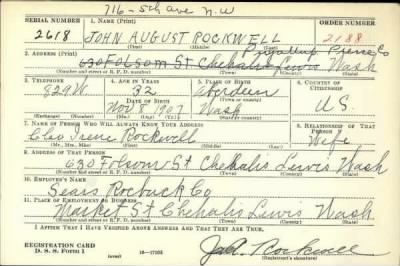 716-5th ave N.W
SERIAL NUMBER 1. NAME (Print) ORDER NUMBER
2618 JOHN AUGUST ROCKWELL 2188
(First) (Middle) (Last)
2. ADDRESS (Print) Puyallup Pierce Co
630 Folsom St Chehalis Lewis Wash
(Number and street or R. F. D. number) (Town) (County) (State)
3. TELEPHONE 4. AGE IN YEARS 5. PLACE OF BIRTH 6. COUNTRY OF CITIZENSHIP
829W 32 Aberdeen
DATE OF BIRTH (Town or county)
Nov 8 1907 Wash U.S.
(Exchange) (No.) (Mo.) (Day) (Yr.) (State or country)
7. NAME OF PERSON WHO WILL ALWAYS KNOW YOUR ADDRESS 8. RELATIONSHIP OF THAT PERSON
Cleo Irene Rockwell Wife
(Mr., Mrs., Miss) (First) (Middle) (Last)
9. ADDRESS OF THAT PERSON
630 Folsom St Chehalis Lewis Wash
(Number and street or R. F. D. number) (Town) (County) (State)
10. EMPLOYER'S NAME
Sears Roebuck Co
11. PLACE OF EMPLOYMENT OR BUSINESS
Market St Chehalis Lewis Wash
(Number and street or R. F. D. number) (Town) (County) (State)
I AFFIRM THAT I HAVE VERIFIED ABOVE ANSWERS AND THAT THEY ARE TRUE.
REGISTRATION CARD
D. S. S. FORM 1 16-17105 J.A. Rockwell
(over) (Registrant's signature)